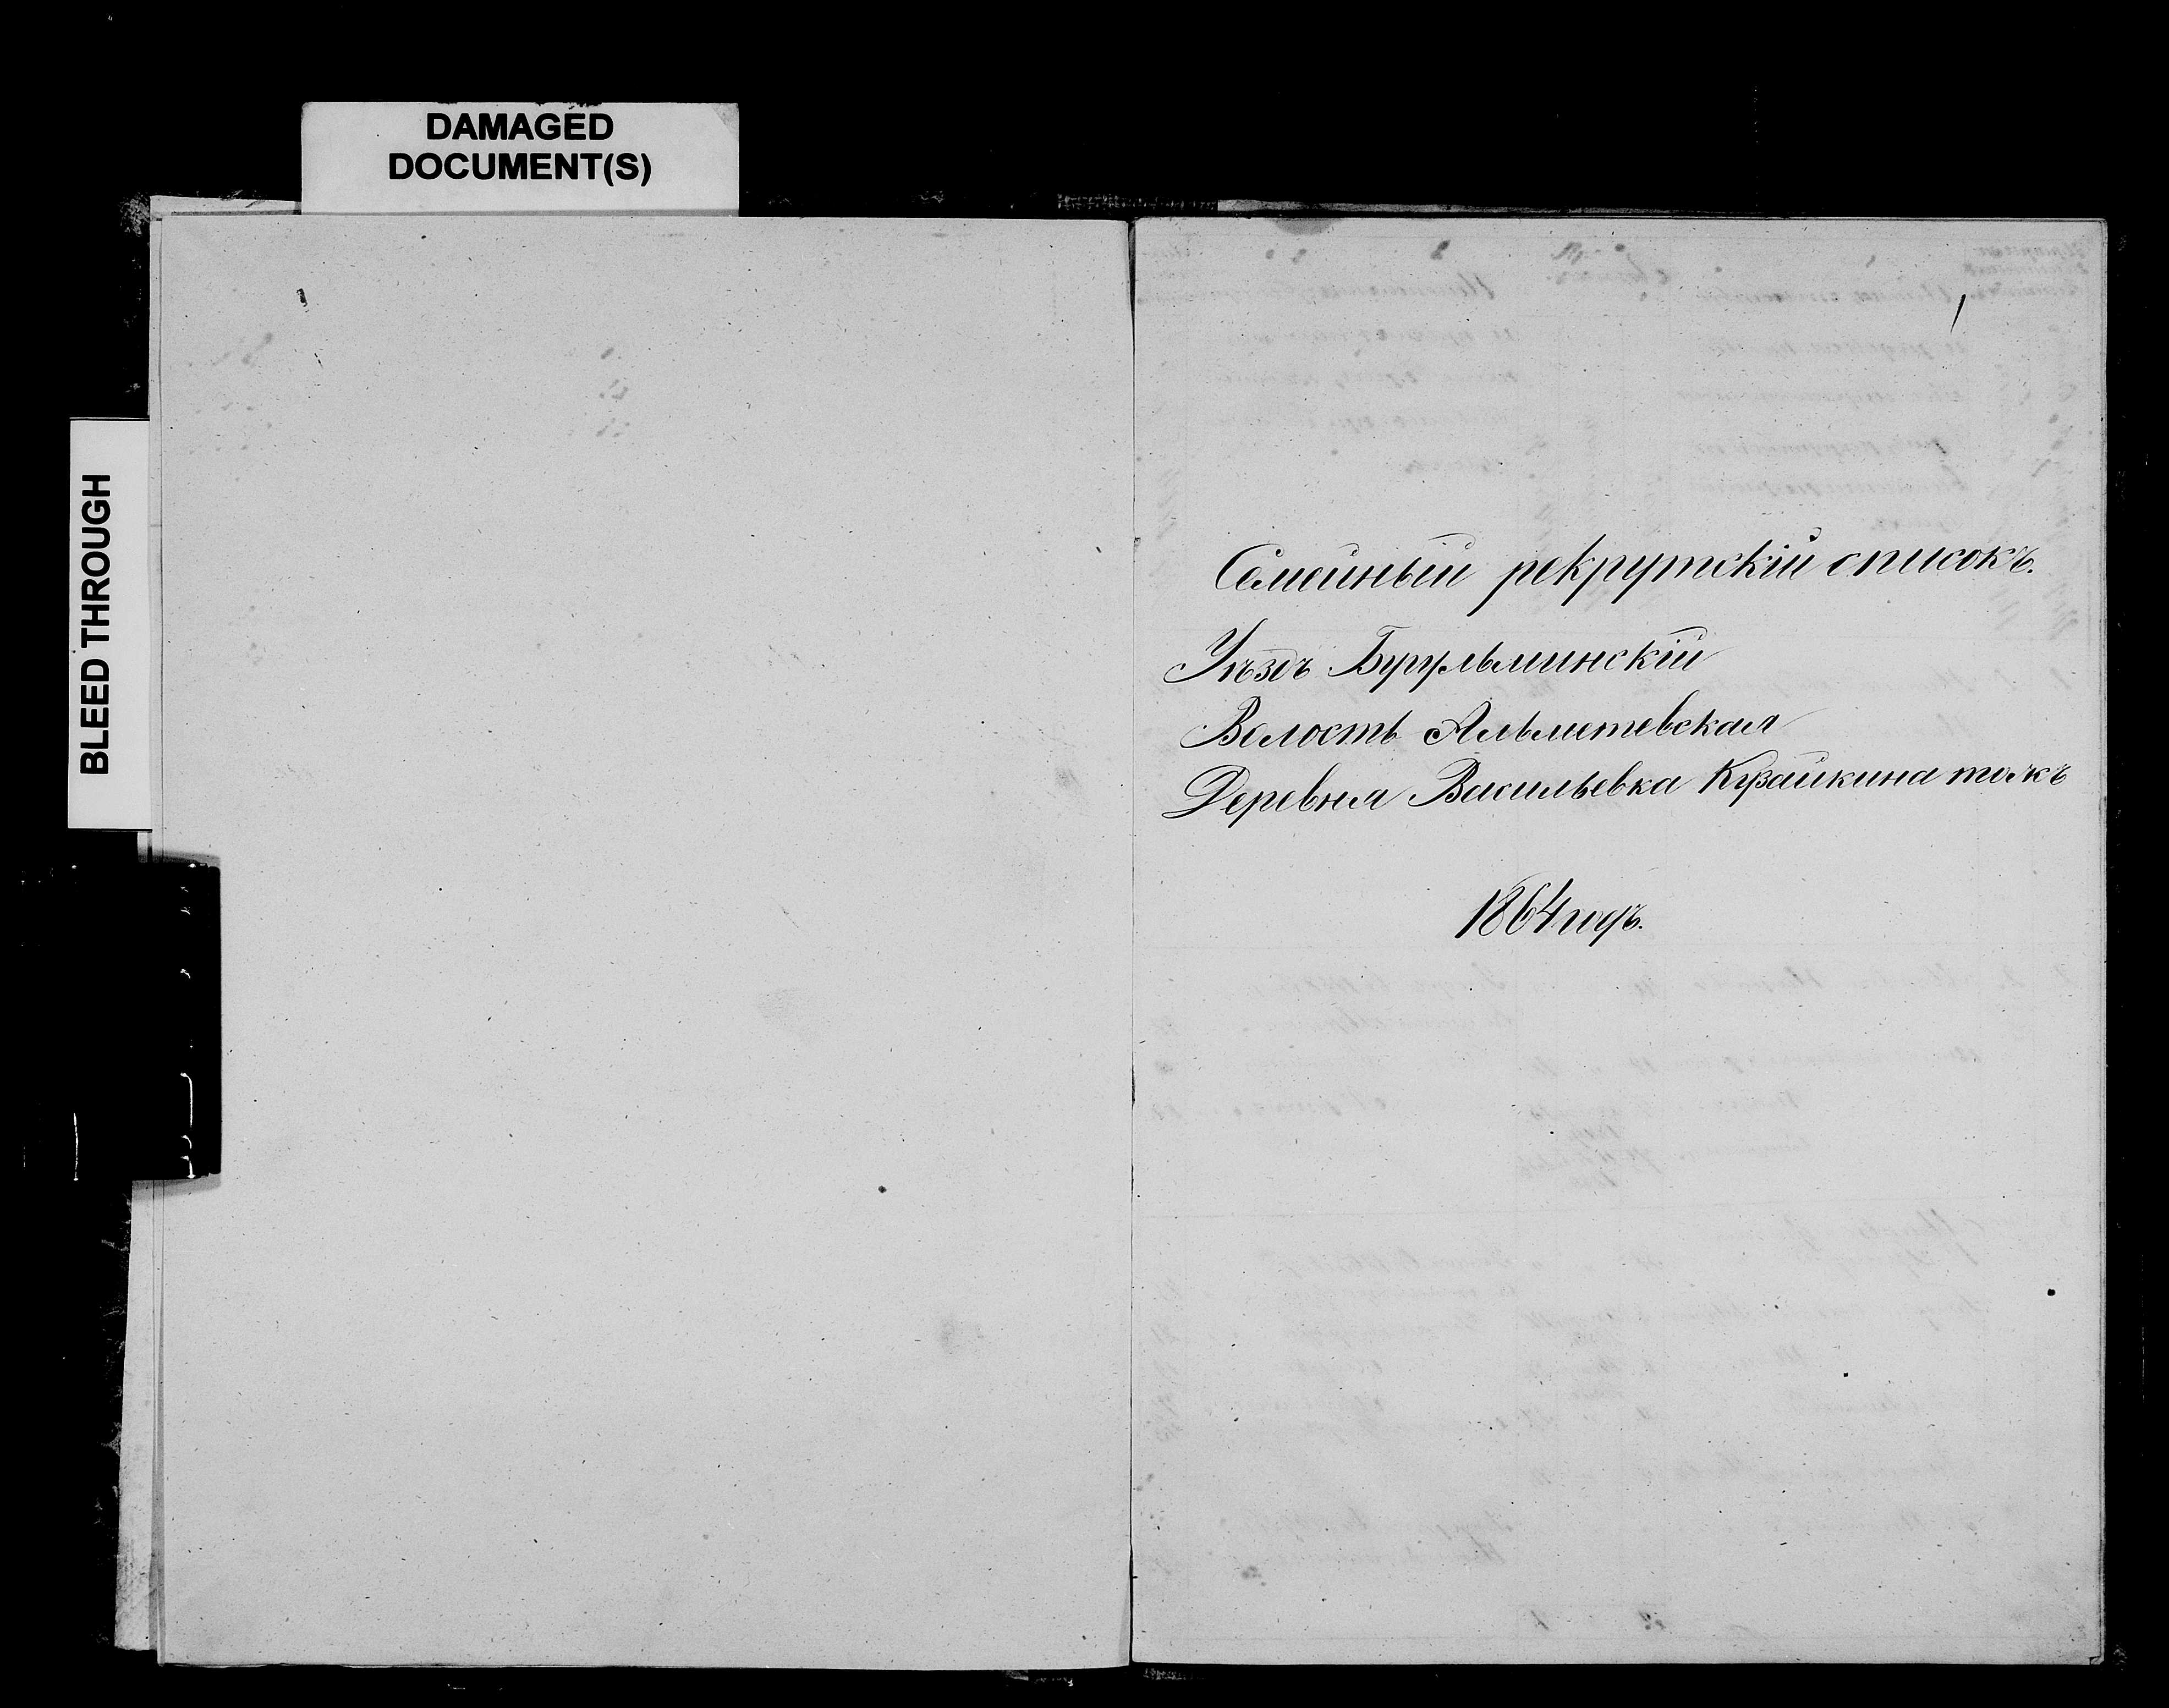 DAMAGED
DOCUMENT(S)
BLEED THROUGH
1
Семейный рекрутскій списокъ.
Уѣздъ Бугульминскій
Волость Альметевская
Деревня Васильевка Кузайкина тожъ
1864 годъ.